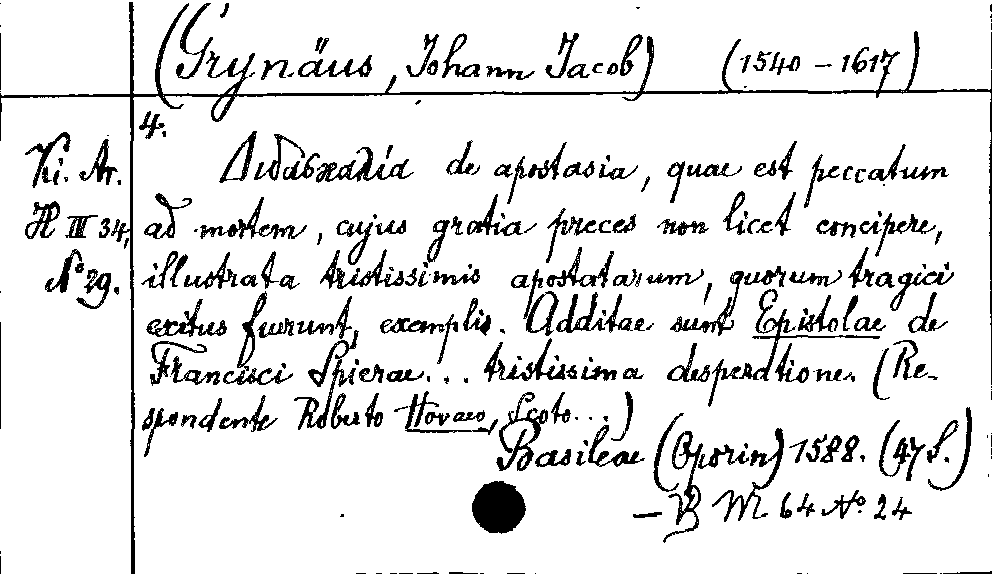 (Grynäus, Johann Jacob) (1540 - 1617)
4.
Ki. Ar.
H III 34,
No 29.
Διδασκαλία de apostasia, quae est peccatum
ad mortem, cujus gratia preces non licet concipere,
illustrata tristissimis apostatarum, quorum tragici
exitus fuerunt, exemplis. Additae sunt Epistolae de
Francisci Spierae... tristissima desperatione. (Re-
spondente Roberto Hovaeo, Scoto...)
Basileae (Oporin) 1588. (47 S.)
— B M 64 No. 24